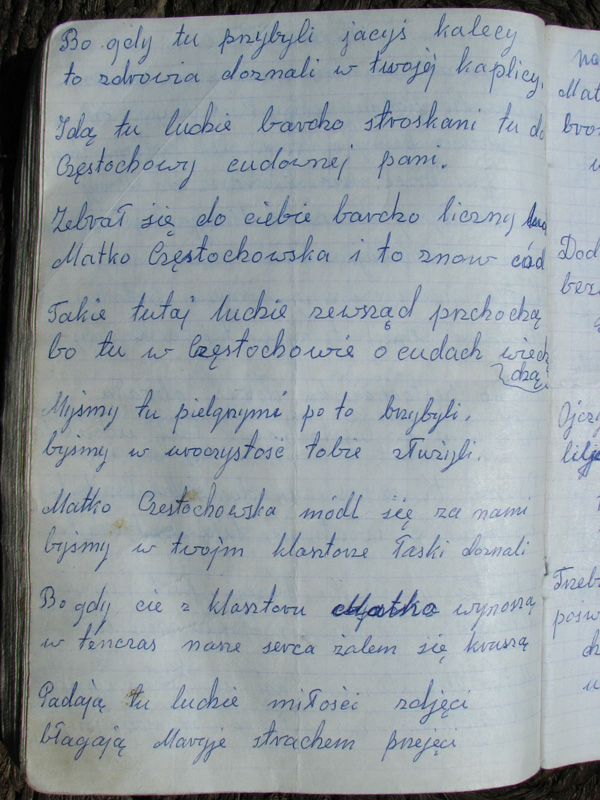 Bo gdy tu przybyli jacyś kalecy
to zdrowia doznali w twojéj kaplicy.
Idą tu ludzie bardzo stroskani tu do
Częstochowy cudownej pani.
Zebrał się do ciebie bardzo liczny
Matko Częstochowska i to znow cód
Takie tutaj ludzie zewsząd przhodzą
bo tu w Częstochowie o cudach wiedzą
dzą
Myśmy tu pielgrzymi po to brzybyli.
byśmy w uroczystość tobie złużyli.
Matko Częstochowska módl śię za nami
byśmy w twojm klasztorze łaski doznali
Bo gdy cie z klasztoru Matko wynoszą
w tenczas nasze serca żalem się kruszą
Padają tu ludzie miłości zdjęci
błagają Maryje strachem przejęci
na
Dod
Ojcz